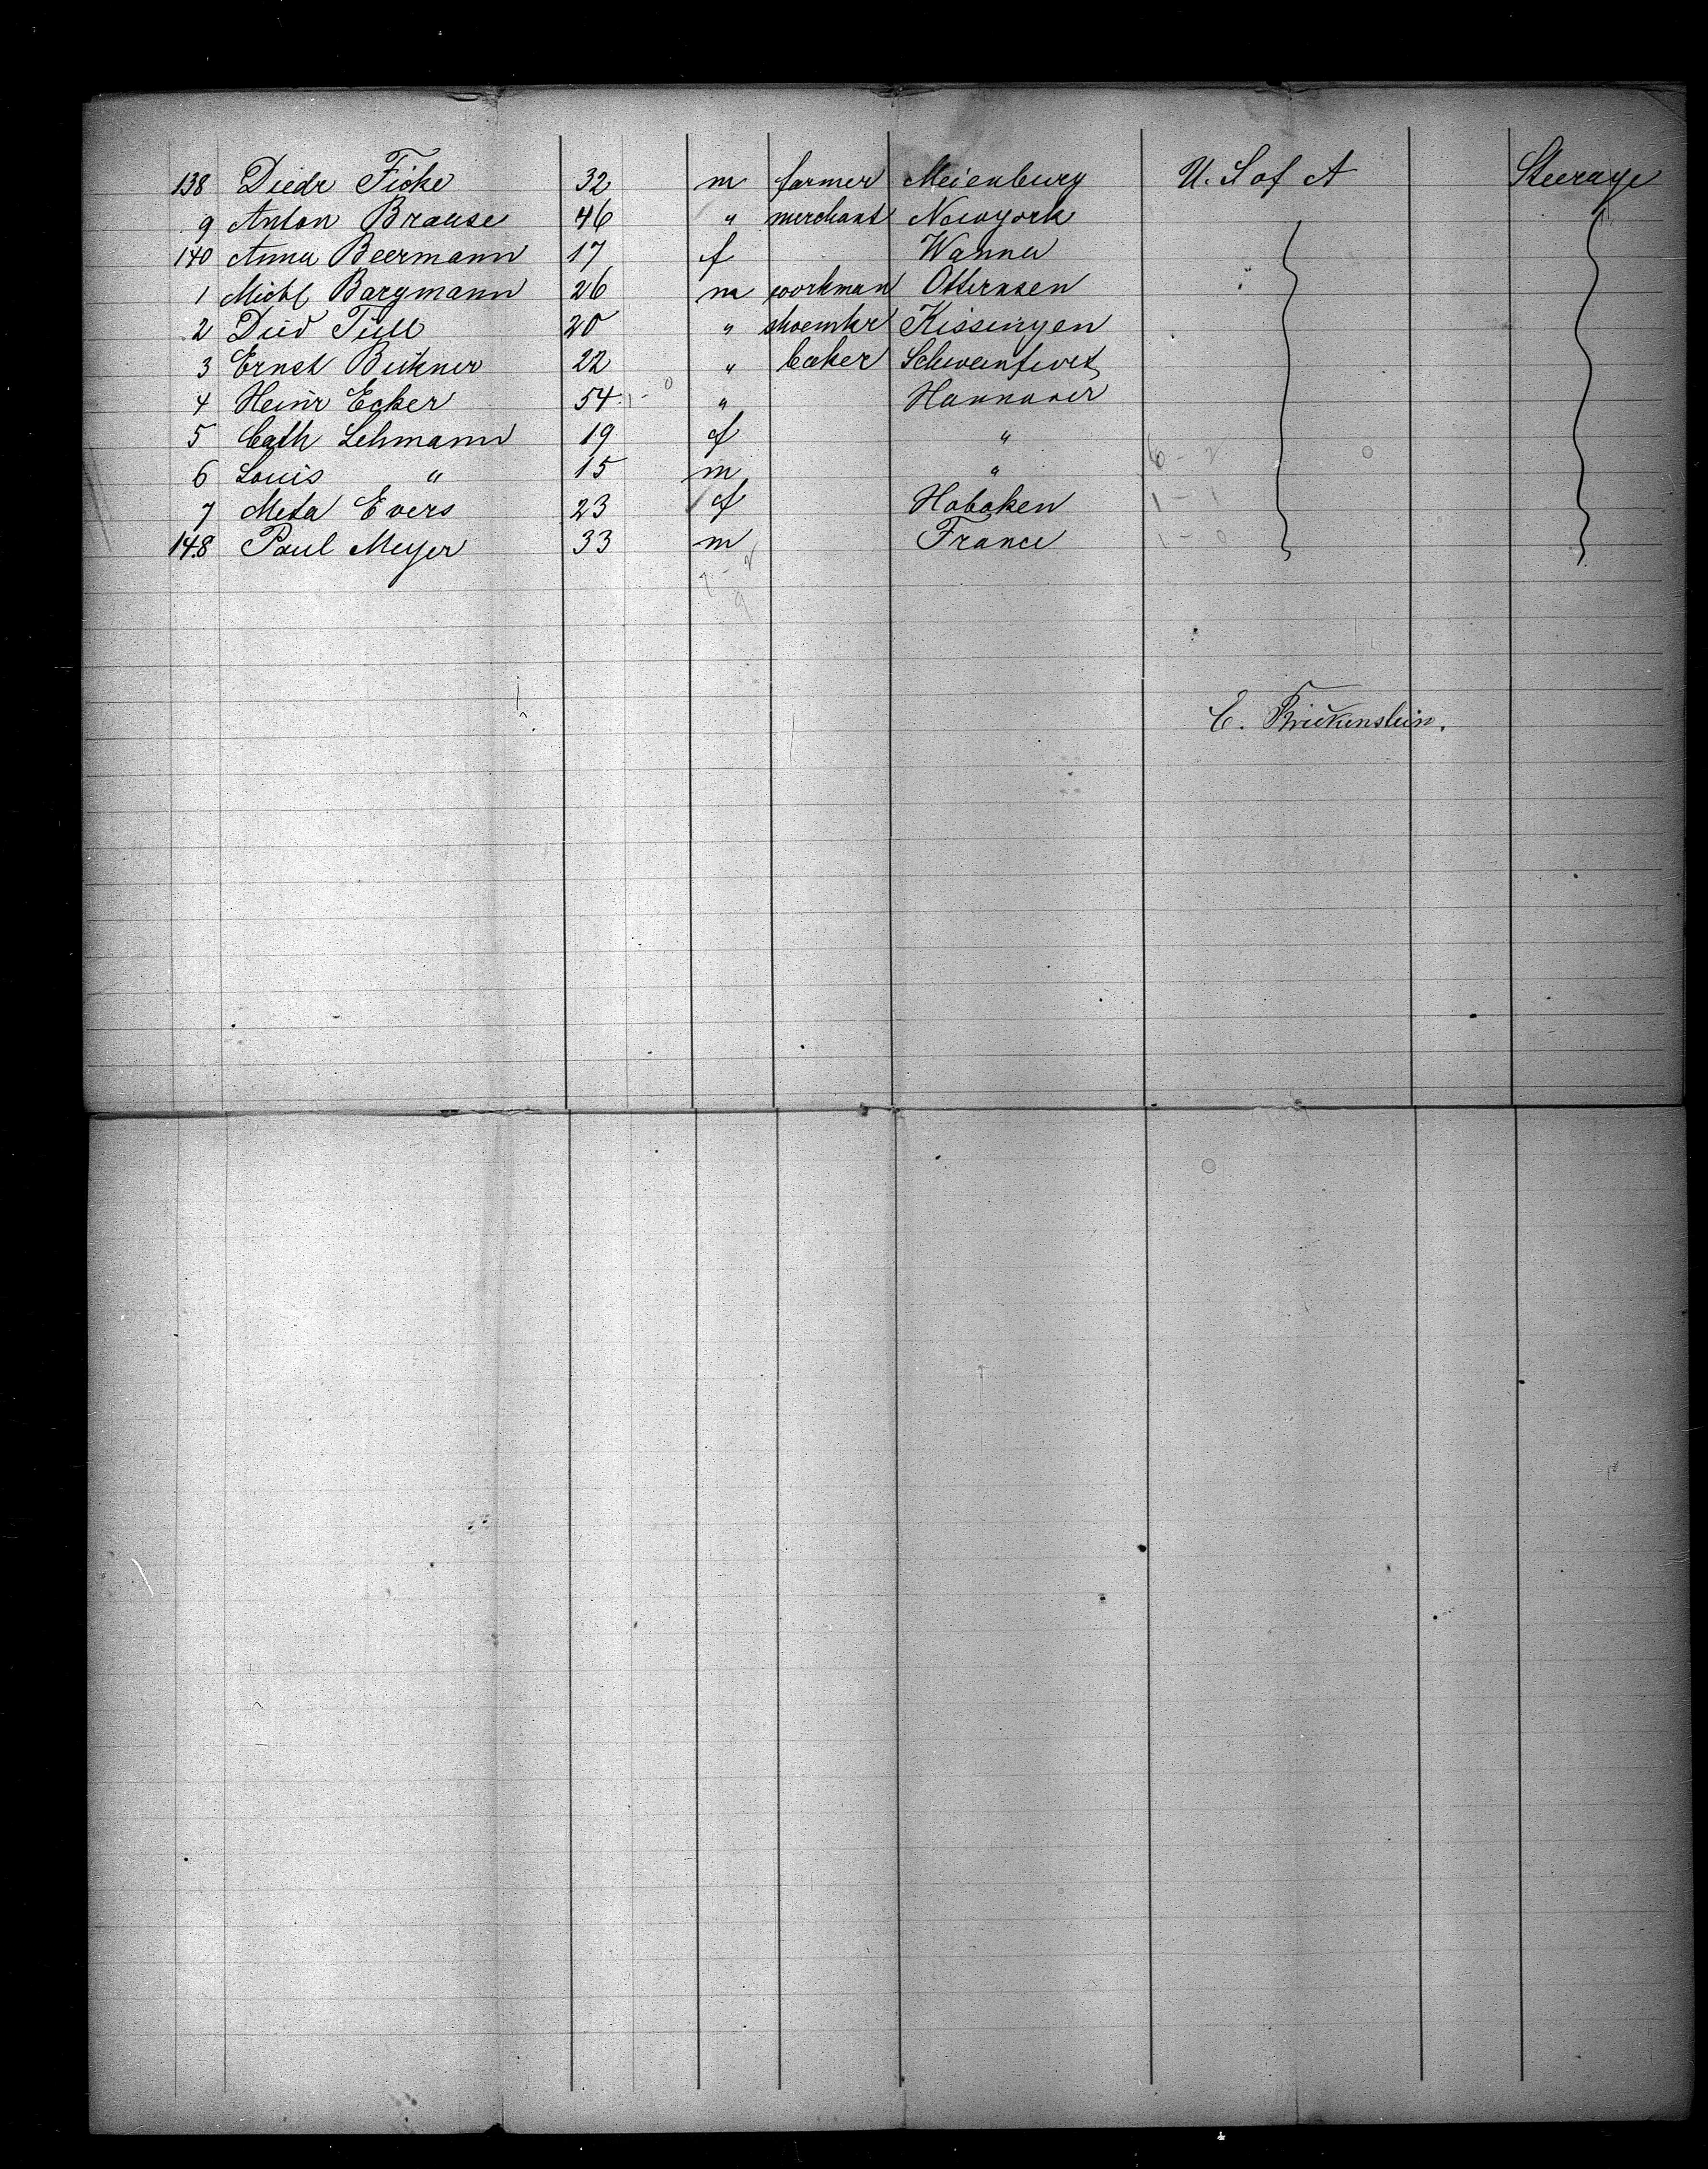 138 Diedr Ficke 32 m farmer Meienburg U. S of A Steerage
9 Anton Brause 46 " merchant Newyork
140 Anna Beermann 17 f Wanna
1 Michl Bargmann 26 m workman Otternsen
2 Died 20 " shoemkr Kissingen
3 Ernst Büttner 22 " baker Schweinfurt
4 Heinr Ecker 54 " Hannover
5 Cath Lehmann 19 f "
6 Louis " 15 m "
7 Meta Evers 23 f Hoboken
148 Paul Meyer 33 m France
C. Brickenstein.